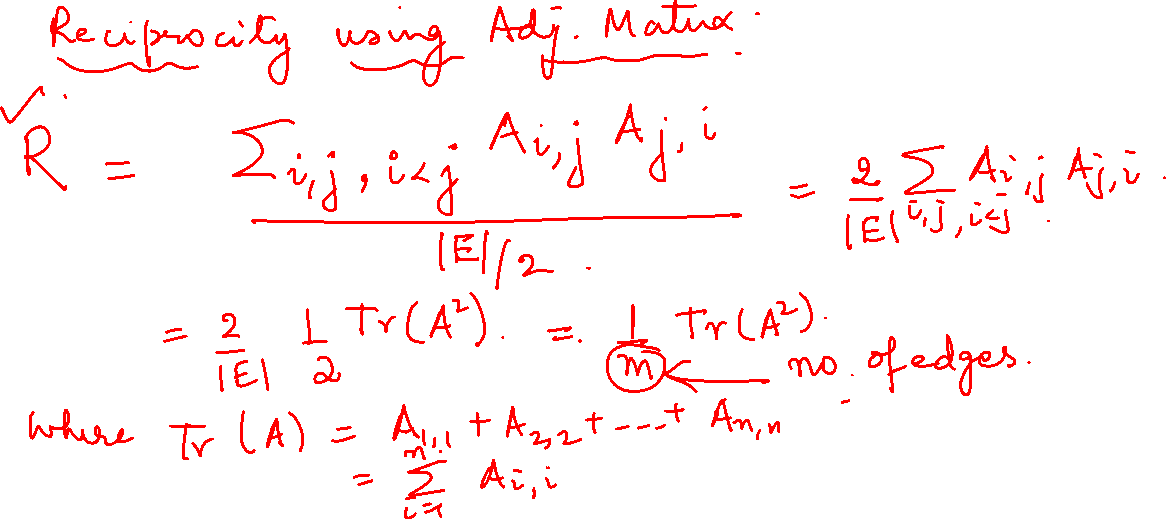 Reciprocity using Adj. Matrix.
✓ R = Σ_{i,j, i<j} A_{i,j} A_{j,i} / (|E|/2) = 2/|E| Σ_{i,j, i<j} A_{i,j} A_{j,i}.
= 2/|E| 1/2 Tr(A²). = 1/m Tr(A²). ← no. of edges.
where Tr(A) = A_{1,1} + A_{2,2} + ---- + A_{n,n}
= Σ_{i=1}^{n} A_{i,i}